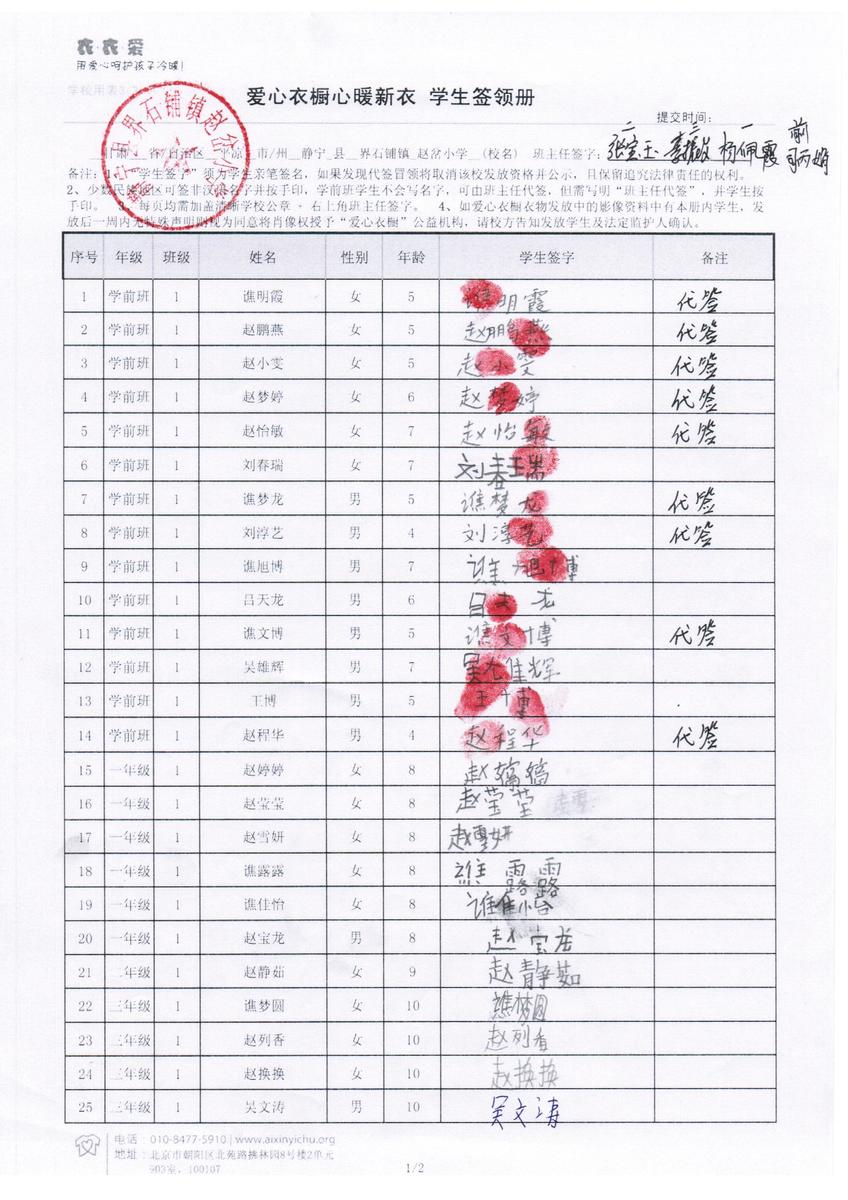 衣·衣·爱
用爱心呵护孩子冷暖!
学校用表3
爱心衣橱心暖新衣 学生签领册
提交时间:
二 三 一 前
界石铺镇赵岔小
甘肃 省/自治区 平凉 市/州 静宁 县 界石铺镇 赵岔小学 (校名) 班主任签字: 张宝玉 杨佩霞
备注:1、“学生签字”须为学生亲笔签名,如果发现代签冒领将取消该校发放资格并公示,且保留追究法律责任的权利。
2、少数民族地区可签非汉语名字并按手印,学前班学生不会写名字,可由班主任代签,但需写明“班主任代签”,并学生按
手印。 3、每页均需加盖清晰学校公章 + 右上角班主任签字。 4、如爱心衣橱衣物发放中的影像资料中有本册内学生,发
放后一周内无特殊声明则视为同意将肖像权授予“爱心衣橱”公益机构,请校方告知发放学生及法定监护人确认。
序号 年级 班级 姓名 性别 年龄 学生签字 备注
1 学前班 1 谯明霞 女 5 谯明霞 代签
2 学前班 1 赵鹏燕 女 5 赵鹏燕 代签
3 学前班 1 赵小雯 女 5 赵小雯 代签
4 学前班 1 赵梦婷 女 6 赵梦婷 代签
5 学前班 1 赵怡敏 女 7 赵怡敏 代签
6 学前班 1 刘春瑞 女 7 刘春瑞
7 学前班 1 谯梦龙 男 5 谯梦龙 代签
8 学前班 1 刘淳艺 男 4 刘淳艺 代签
9 学前班 1 谯旭博 男 7 谯旭博
10 学前班 1 吕天龙 男 6 吕天龙
11 学前班 1 谯文博 男 5 谯文博 代签
12 学前班 1 吴雄辉 男 7 吴雄辉
13 学前班 1 王博 男 5 王博
14 学前班 1 赵程华 男 4 赵程华 代签
15 一年级 1 赵婷婷 女 8 赵婷婷
16 一年级 1 赵莹莹 女 8 赵莹莹
17 一年级 1 赵雪妍 女 8 赵雪妍
18 一年级 1 谯露露 女 8 谯露露
19 一年级 1 谯佳怡 女 8 谯佳怡
20 一年级 1 赵宝龙 男 8 赵宝龙
21 二年级 1 赵静茹 女 9 赵静茹
22 三年级 1 谯梦圆 女 10 谯梦圆
23 三年级 1 赵列香 女 10 赵列香
24 三年级 1 赵换换 女 10 赵换换
25 三年级 1 吴文涛 男 10 吴文涛
电话:010-8477-5910 | www.aixinyichu.org
地址:北京市朝阳区北苑路拂林园8号楼2单元
903室,100107
1/2